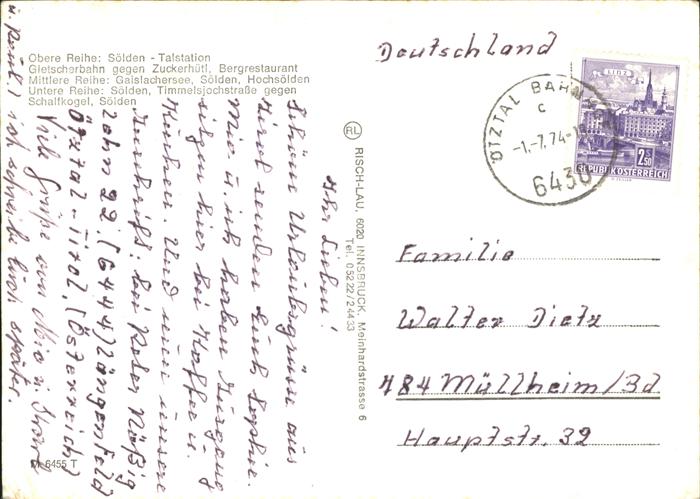 Obere Reihe: Sölden - Talstation
Gletscherbahn gegen Zuckerhütl, Bergrestaurant
Mittlere Reihe: Gaislachersee, Sölden, Hochsölden
Untere Reihe: Sölden, Timmelsjochstraße gegen
Schalfkogel, Sölden
Ihr Lieben!
Schöne Urlaubsgrüße aus
Tirol senden Euch
Mio u. ich haben Ausgang
sitzen hier bei Kaffee u.
Kuchen. Und nun unsere
Anschrift: bei Peter Nößig
Lehn 22. (6444) Längenfeld
Ötztal-Tirol. (Österreich)
Viele Grüße von Mio u.
u. Paul. ich schreibe Euch später.
M 6455 T
RL RISCH-LAU, 6020 INNSBRUCK, Meinhardstrasse 6
Tel. 05222/24433
Deutschland
LINZ
2.50
REPUBLIK ÖSTERREICH
ÖTZTAL BAHNHOF
C
-1.-7.74-
6430
Familie
Walter Dietz
784 Müllheim/Bd
Hauptstr. 32